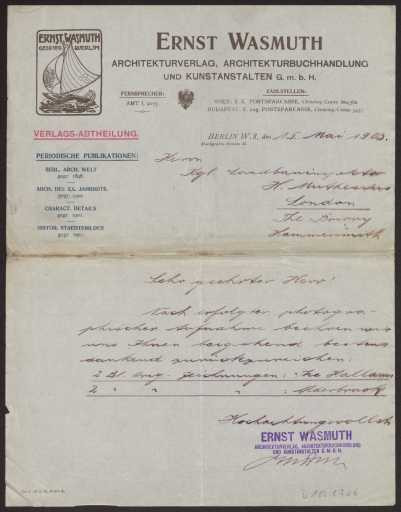 ERNST WASMUTH
GEGR 1872 BERLIN
ERNST WASMUTH
ARCHITEKTURVERLAG, ARCHITEKTURBUCHHANDLUNG
UND KUNSTANSTALTEN G. m. b. H.
FERNSPRECHER:
AMT I,
ZAHLSTELLEN:
WIEN: K. K. POSTSPARCASSE, Clearing-Conto
BUDAPEST: K. ung. POSTSPARCASSE, Clearing-Conto
VERLAGS-ABTHEILUNG.
BERLIN W. 8, den 15. Mai 1903.
PERIODISCHE PUBLIKATIONEN:
BERL. ARCH. WELT
gegr. 1898.
ARCH. DES XX. JAHRHDTS.
gegr. 1901.
CHARACT. DETAILS
gegr. 1901.
HISTOR. STAEDTEBILDER
gegr. 1901.
Herrn
Kgl. Landbauinspektor
H. Muthesius
London
The Priory
Hammersmith
Sehr geehrter Herr!
Nach erfolgter photogra-
phischer Aufnahme beehren wir
uns Ihnen beigehend bestens
dankend zurückzureichen:
2 Bl. orig. Zeichnungen: The
2 " " " :
Hochachtungsvollst
ERNST WASMUTH
ARCHITEKTURVERLAG, ARCHITEKTURBUCHHANDLUNG
UND KUNSTANSTALTEN G. M. B. H.